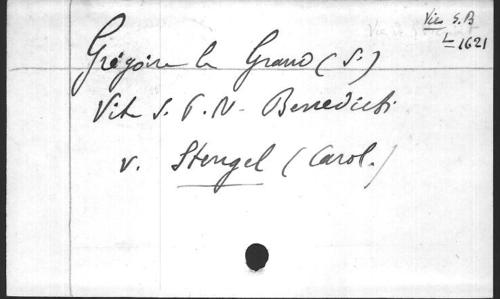 Vie S.B
L 1621
Grégoire le Grand (S.)
Vita S. P. N. Benedicti
v. Stengel (Carol.)